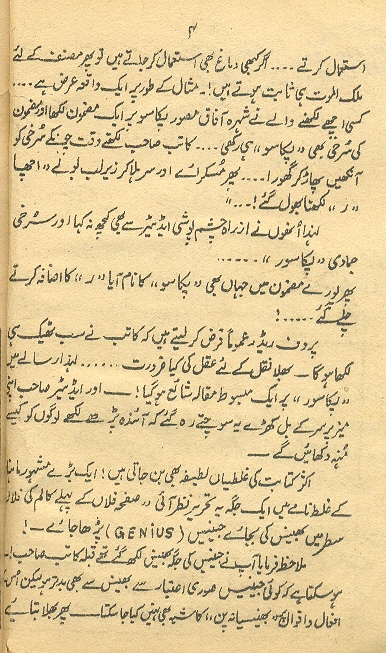 ۴
استعمال کرتے .... اگر کبھی دماغ بھی استعمال کر جاتے ہیں تو پھر مصنف کے لئے
ملک الموت ہی ثابت ہوتے ہیں!۔ مثال کے طور پر ایک واقعہ عرض ہے ....
کسی اچھے لکھنے والے نے شہرہ آفاق مصور پکاسو پر ایک مضمون لکھا اور مضمون
کی سُرخی بھی ”پکاسو“ ہی رکھی .... کاتب صاحب لکھتے وقت چونکے سُرخی کو
آنکھیں پھاڑ کر گھورا .... پھر مُسکرائے اور سر ہلا کر زیر لب بولے ”اچھا
”ر“ لکھنا بھول گئے! ....“
لہٰذا اُنھوں نے از راہِ چشم پوشی ایڈیٹر سے بھی کچھ نہ کہا اور سُرخی
جما دی ”پکاسور“ ......
پھر پورے مضمون میں جہاں بھی ”پکاسو“ کا نام آیا ”ر“ کا اضافہ کرتے
چلے گئے .....!
پروف ریڈر عموماً فرض کر لیتے ہیں کہ کاتب نے سب ٹھیک ہی
لکھا ہو گا۔ بھلا نقل کے لئے عقل کی کیا ضرورت ...... لہٰذا رسالے میں
”پکاسور“ پر ایک مبسوط مقالہ شائع ہو گیا! — اور ایڈیٹر صاحب اپنی
میز پر سر کے بل کھڑے یہ سوچتے رہ گئے کہ آئندہ پڑھے لکھے لوگوں کو کیسے
مُنہ دکھائیں گے —
اکثر کتابت کی غلطیاں لطیفہ بھی بن جاتی ہیں! ایک بڑے مشہور ماہنامے
کے غلط نامے میں ایک جگہ یہ تحریر نظر آئی ”صفحہ فلاں کے پہلے کالم کی فلاں
سطر میں بھینس کی بجائے جینیس (GENIUS) پڑھا جائے —!
ملاحظہ فرمایا آپ نے جینیس کی جگہ بھینس لکھ گئے تھے قبلہ کاتب صاحب!۔
ہو سکتا ہے کہ کوئی جینیس صوری اعتبار سے بھینس سے بھی بدتر ہو لیکن اُس کے
افعال و اقوال پر ”بھینسیانہ پن“ کا شبہ بھی نہیں کیا جا سکتا۔ پھر بھلا بتائیے